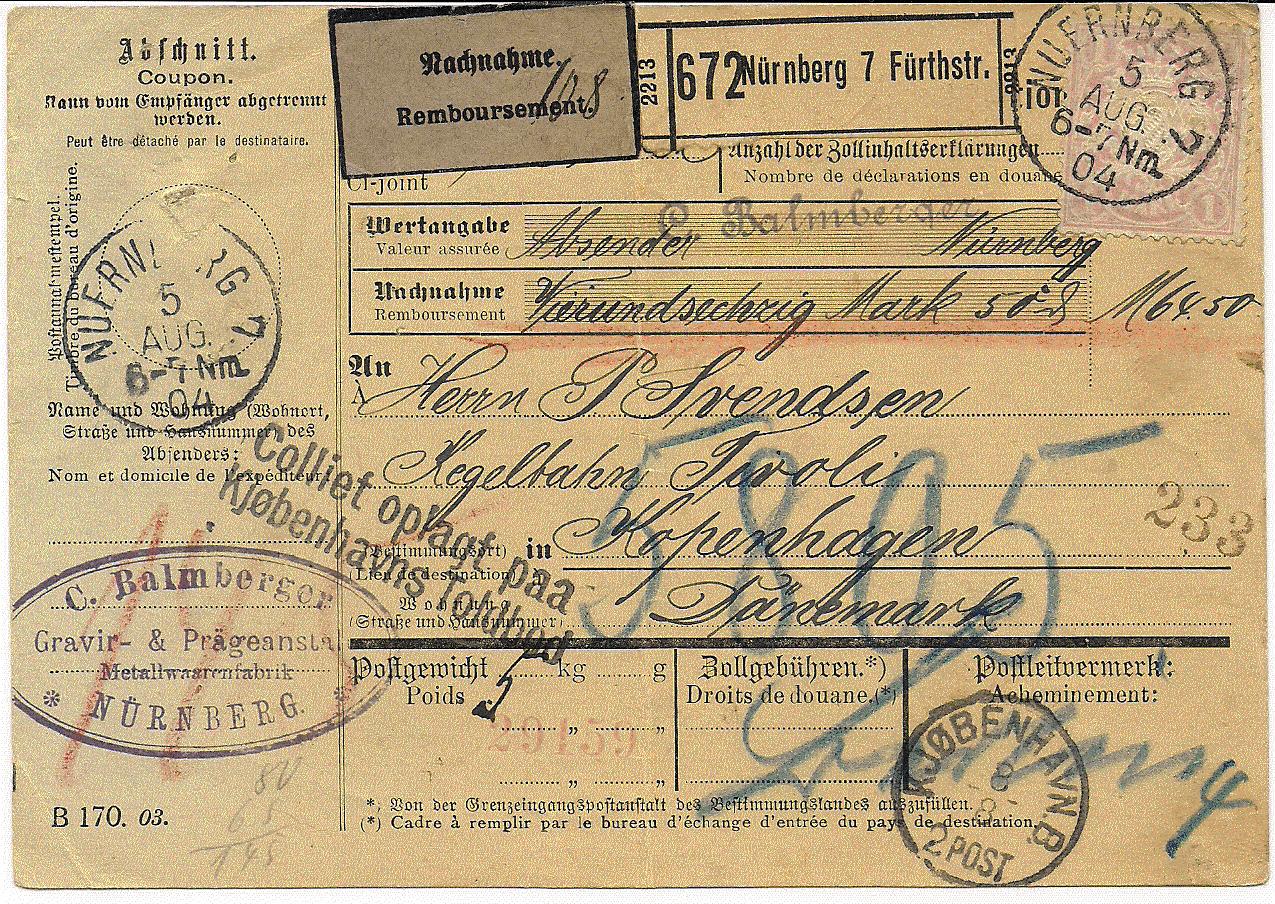 Abschnitt.
Coupon.
Kann vom Empfänger abgetrennt
werden.
Peut être détaché par le destinataire.
Postannahmestempel.
Timbre du bureau d'origine.
NUERNBERG 7
5
AUG.
6-7 Nm.
04
Name und Wohnung (Wohnort,
Straße und Hausnummer) des
Absenders:
Nom et domicile de l'expéditeur
C. Balmberger
Gravir- & Prägeansta
Metallwaarenfabrik
* NÜRNBERG. *
80
65
145
B 170. 03.
Nachnahme.
Remboursement.
2213
672 Nürnberg 7 Fürthstr.
2213
NUERNBERG 7
5
AUG.
6-7 Nm.
04
1
Ci-joint
Anzahl der Zollinhaltserklärungen
Nombre de déclarations en douane
C. Balmberger
Wertangabe
Valeur assurée
Absender Nürnberg
Nachnahme
Remboursement
Vierundsechzig Mark 50 M 64 50
An
À
Herrn P Svendsen
Kegelbahn Tivoli
in Kopenhagen
(Bestimmungsort)
(Lieu de destination)
Dänemark
Wohnung
(Straße und Hausnummer)
5805
233
Colliet oplagt paa
Kjøbenhavns Toldbod
Postgewicht kg g
Poids
5
" "
" "
Zollgebühren.*)
Droits de douane.(*
Postleitvermerk:
Acheminement:
KJØBENHAVN.B.
8
-8-
2 POST
*) Von der Grenzeingangspostanstalt des Bestimmungslandes auszufüllen.
(*) Cadre à remplir par le bureau d'échange d'entrée du pays de destination.